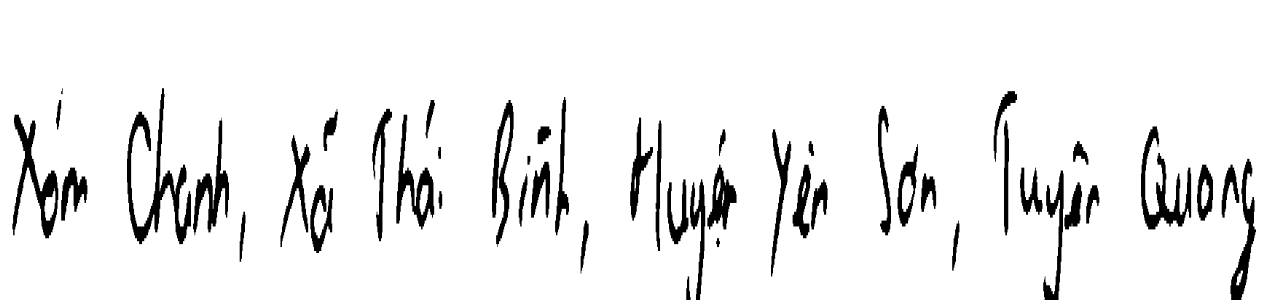 Xóm Chanh, Xã Thái Bình, Huyện Yên Sơn, Tuyên Quang